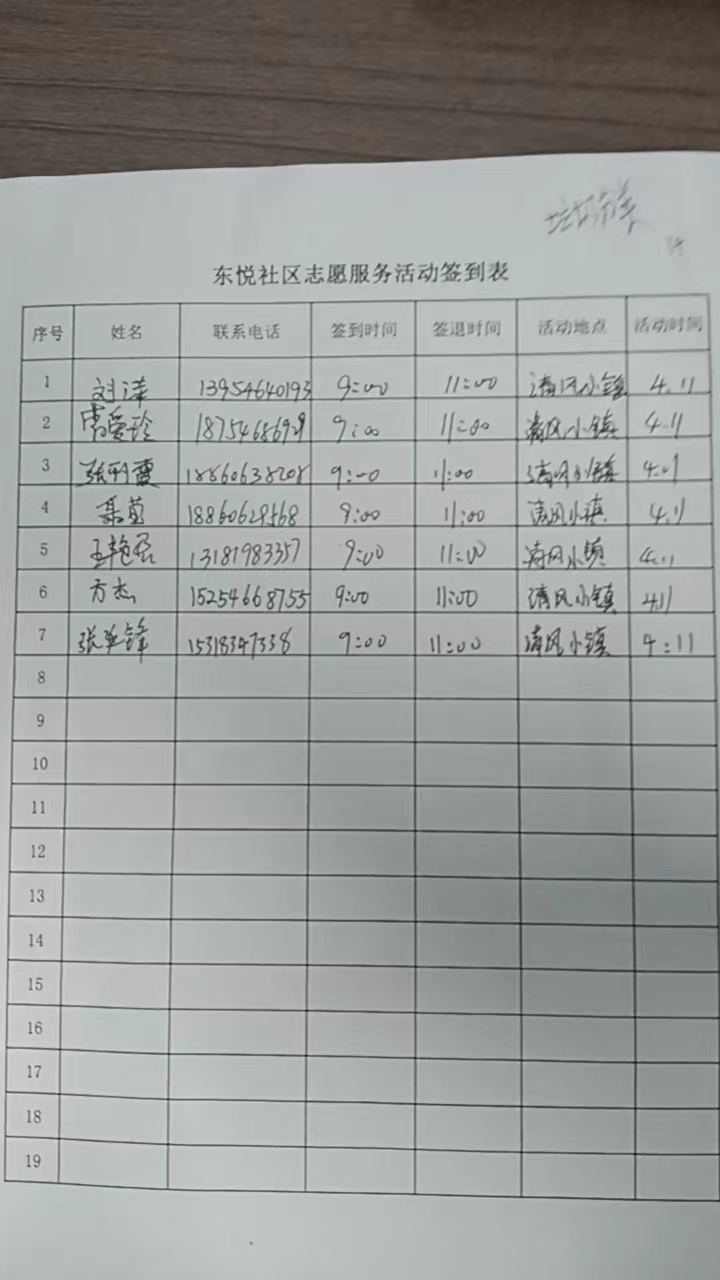 东悦社区志愿服务活动签到表
序号 姓名 联系电话 签到时间 签退时间 活动地点 活动时间
1 刘洋 13954640193 9:00 11:00 清风小镇 4.11
2 爱玲 9:00 11:00 清风小镇 4.11
3 张 18860638208 9:00 11:00 清风小镇 4.11
4 18860629568 9:00 11:00 清风小镇 4.11
5 王艳磊 13181983357 9:00 11:00 清风小镇 4.11
6 方杰 15254668755 9:00 11:00 清风小镇 4.11
7 张 锋 15318347338 9:00 11:00 清风小镇 4:11
8
9
10
11
12
13
14
15
16
17
18
19